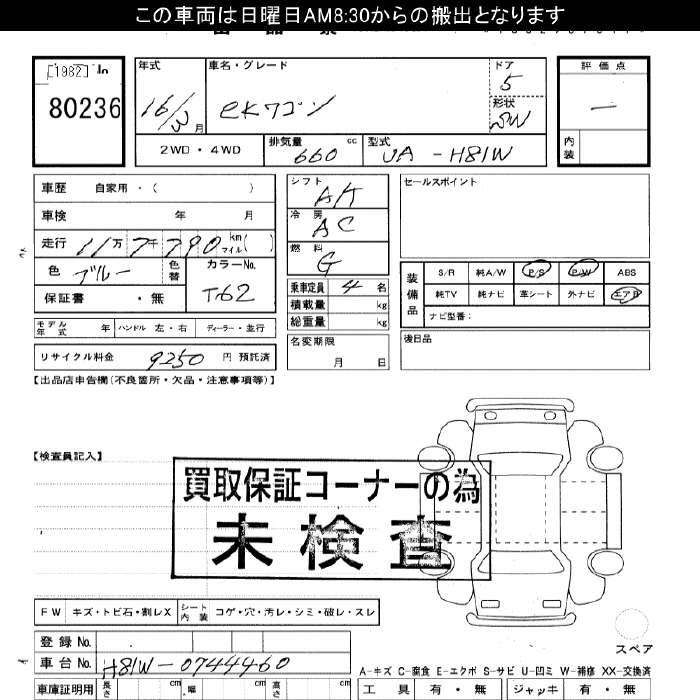 この車両は日曜日AM8:30からの搬出となります
[1982] In
80236
年式 車名・グレード ドア 評価点
16/3月 eKワゴン 5
形状 5W
2WD・4WD 排気量 660 cc 型式 UA-H81W 内装
車歴 自家用・( )
車検 年 月
走行 11万7千790 km マイル( )
色 ブルー 色替 カラーNo. T62
保証書 ・無
モデル年式 年 ハンドル 左・右 ディーラー・並行
リサイクル料金 9250 円 預託済
シフト A/T
冷房 AC
燃料 G
乗車定員 4 名
積載量 kg
総重量 kg
名変期限
月 日
セールスポイント
装備品 S/R 純A/W P/S P/W ABS
純TV 純ナビ 革シート 外ナビ エアB
ナビ型番:
後日品
【出品店申告欄(不良箇所・欠品・注意事項等)】
【検査員記入】
買取保証コーナーの為
未検査
FW キズ・トビ石・割レX シート内装 コゲ・穴・汚レ・シミ・破レ・スレ
スペア
登録No.
車台No. H81W-0744460
A-キズ C-腐食 E-エクボ S-サビ U-凹ミ W-補修 XX-交換済
車庫証明用 長さ cm 幅 cm 高さ cm 工具 有・無 ジャッキ 有・無